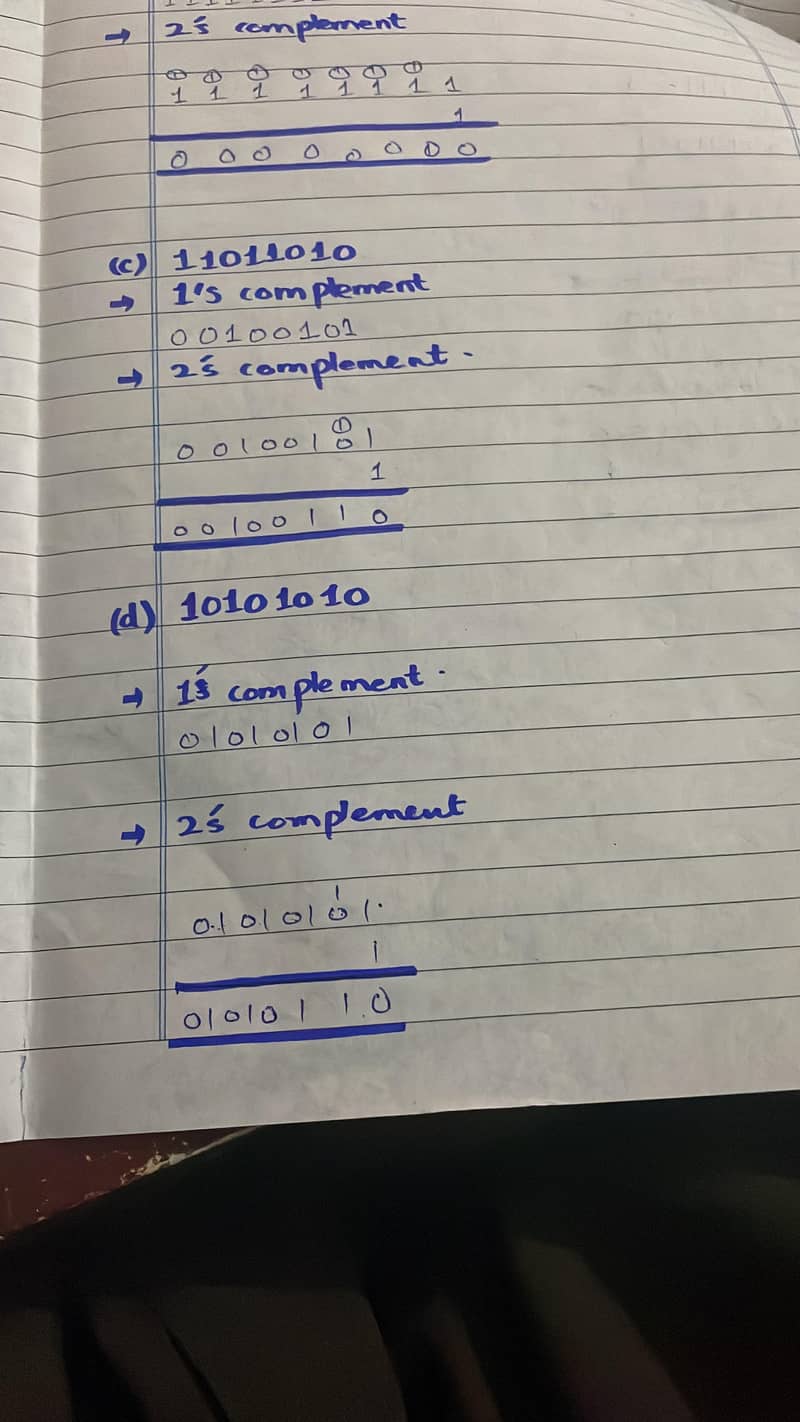 → 2's complement
① ① ① ① ① ① ①
1 1 1 1 1 1 1 1
1
0 0 0 0 0 0 0 0
(c) 11011010
→ 1's complement
00100101
→ 2's complement.
①
0 0 1 0 0 1 0 1
1
0 0 1 0 0 1 1 0
(d) 10101010
→ 1's complement.
0 1 0 1 0 1 0 1
→ 2's complement
1
0.1 0 1 0 1 0 1.
1
0 1 0 1 0 1 1.0